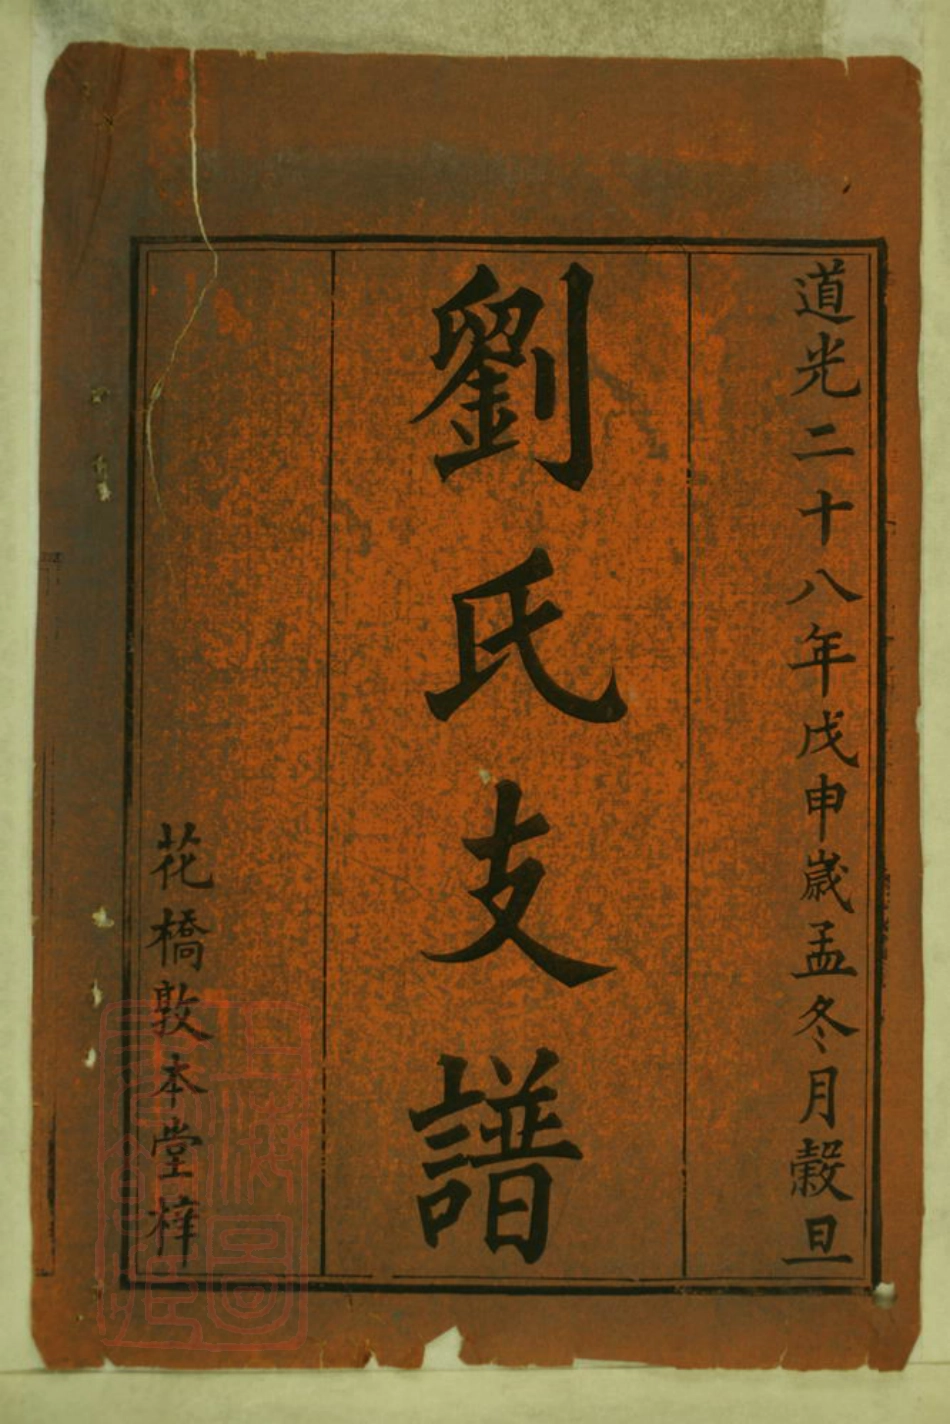 道光二十八年戊申歲孟冬月穀旦
劉氏支譜
花橋敦本堂梓